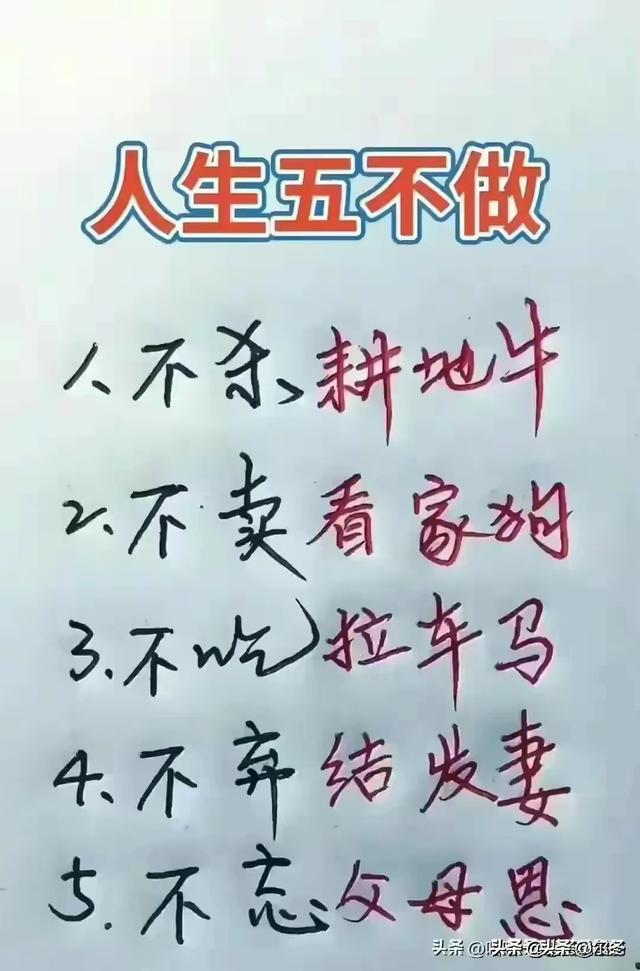 人生五不做
1、不杀、耕地牛
2、不卖看家狗
3.不吃拉车马
4、不弃结发妻
5.不忘父母恩
头条 @头条 @头条